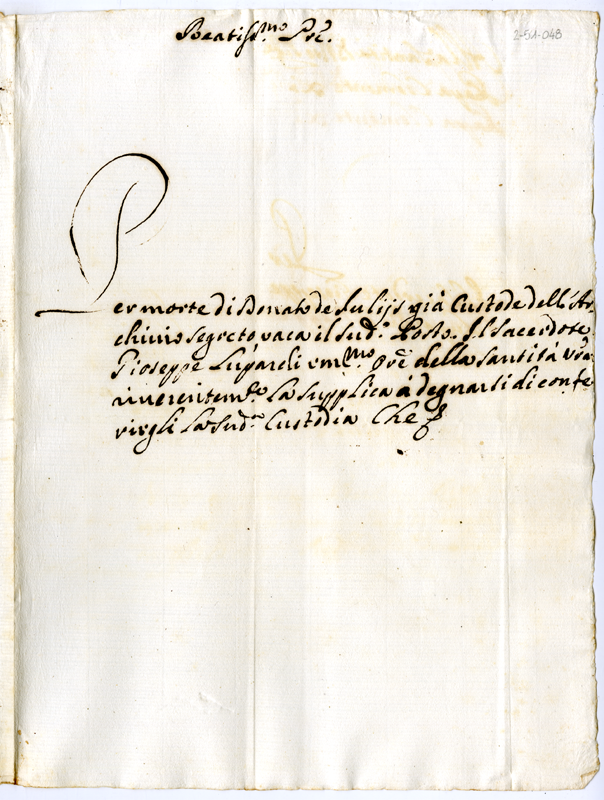 Beatiss.mo Pre.
2-51-048
Per morte di Donato de Julijs già Custode dell'Ar
chivio segreto vaca il sud.o Posto. Il Sacerdote
Gioseppe Lupardi um.mo Ore della Santità Vra
riverentem.te La supplica à degnarsi di confe
rirgli La sud.a Custodia Che